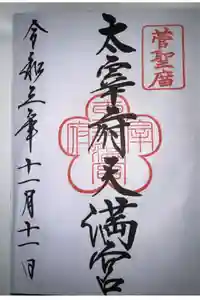 菅聖庿
太宰府天満宮
令和三年十一月十一日